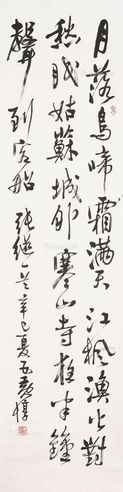 月落烏啼霜滿天江楓漁火對
愁眠姑蘇城外寒山寺夜半鐘
聲到客船 張繼 辛巳夏